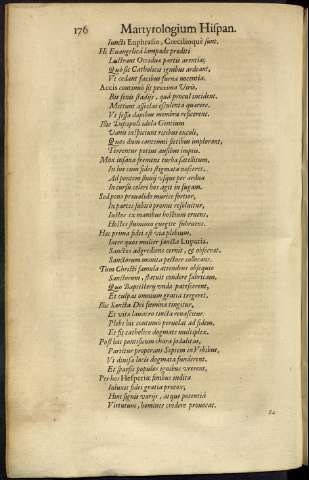 176 Martyrologium Hispan.
Iuncti Euphrasio, Cæcilioquè sunt.
Hi Euangelica lampade præditi
Lustrant Occiduæ partis arentia;
Quò sic Catholicis ignibus ardeant,
Vt cedant facibus furua nocentia.
Accis continuò fit proxima Viris,
Bis senis stadijs, quâ procul insident.
Mittunt asseclas esculenta quærere.
Vt fessa dapibus membra reficerent.
Illic Discipuli idola Gentium
Vanis inspiciunt ritibus excoli,
Quos dum cantamus fletibus implorant,
Terrentur potius ausibus impijs.
Mox insana fremens turba satellitum,
In his cum fidei stegmata nosceret,
Ad pontem fluuij vsque per ardua
Incursu celeri hos agit in fugam.
Sed pons præualido murice fortior,
In partes subitò pronus resoluitur,
Iustos ex manibus hostium eruens,
Hostes flumineo gurgite subruens.
Hæc prima fidei est via plebium,
Inter quos mulier sancta Luparia.
Sanctos adgrediens cernit, & obsecrat,
Sanctorum monita pectore collocans.
Tunc Christi famula attendens obsequio
Sanctorum, statuit condere fabricam,
Quo Baptisterij vnda patescerent,
Et culpas omnium gratia tergeret.
Illic Sancta Dei fœmina tingitur,
Et vitæ lauacro tincta renascitur.
Plebs hic continuò peruolat ad fidem,
Et fit catholico dogmate multiplex.
Post hæc pontificum chara sodalitas,
Partitur properans Septem in Vrbibus,
Vt diuisa locis dogmata funderent,
Et sparsis populos ignibus vrerent,
Per hos Hesperiæ finibus indita
Inluxit fidei gratia præcox;
Hinc signis varijs, atque potentia
Virtutum, homines credere prouocat.